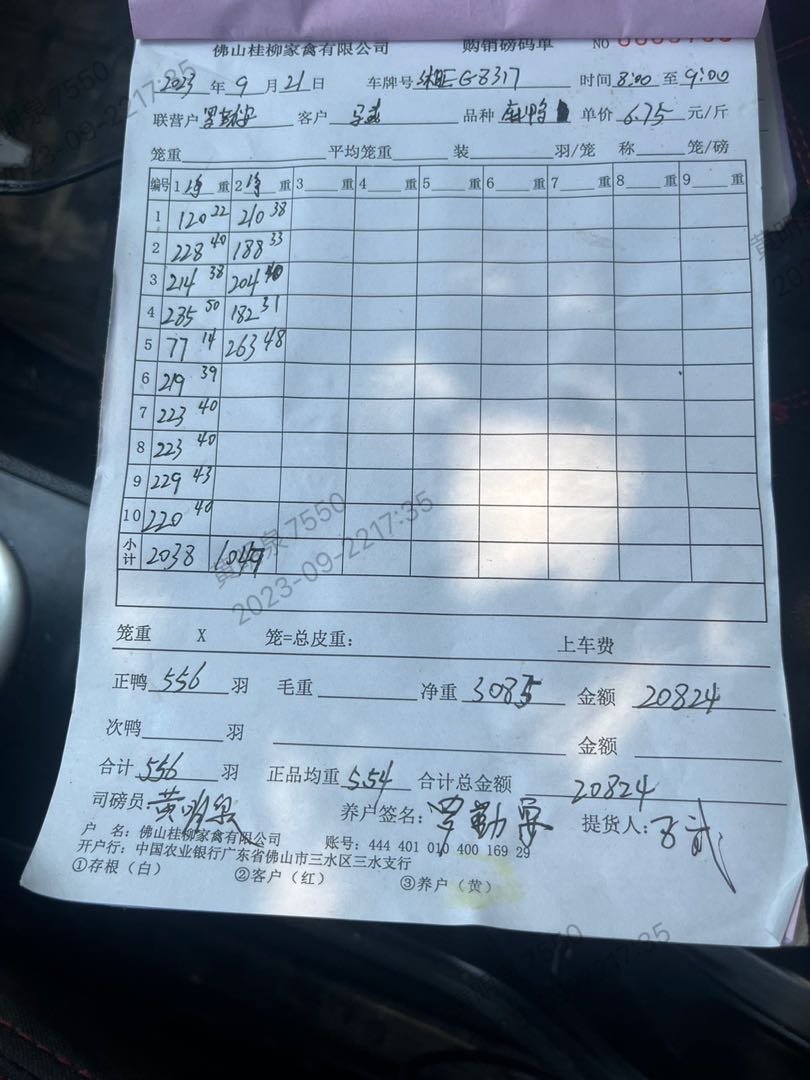 佛山桂柳家禽有限公司 购销磅码单 NO
2023年9月21日 车牌号 G8317 时间8:00至9:00
联营户 客户 品种麻鸭 单价6.75元/斤
笼重 平均笼重 装 羽/笼 称 笼/磅
编号 1净重 2净重 3重 4重 5重 6重 7重 8重 9重
1 120 22 210 38
2 228 40 188 33
3 214 38 204 40
4 285 50 182 31
5 77 14 263 48
6 219 39
7 223 40
8 223 40
9 229 43
10 220 40
小计 2038 1047
笼重 X 笼=总皮重: 上车费
正鸭556羽 毛重 净重3085 金额20824
次鸭 羽 金额
合计556羽 正品均重5.54 合计总金额20824
司磅员黄明泉 养户签名:罗勤 提货人:
户 名:佛山桂柳家禽有限公司 账号:444 401 010 400 169 29
开户行:中国农业银行广东省佛山市三水区三水支行
①存根(白) ②客户(红) ③养户(黄)
黄明泉7550
2023-09-2217:35